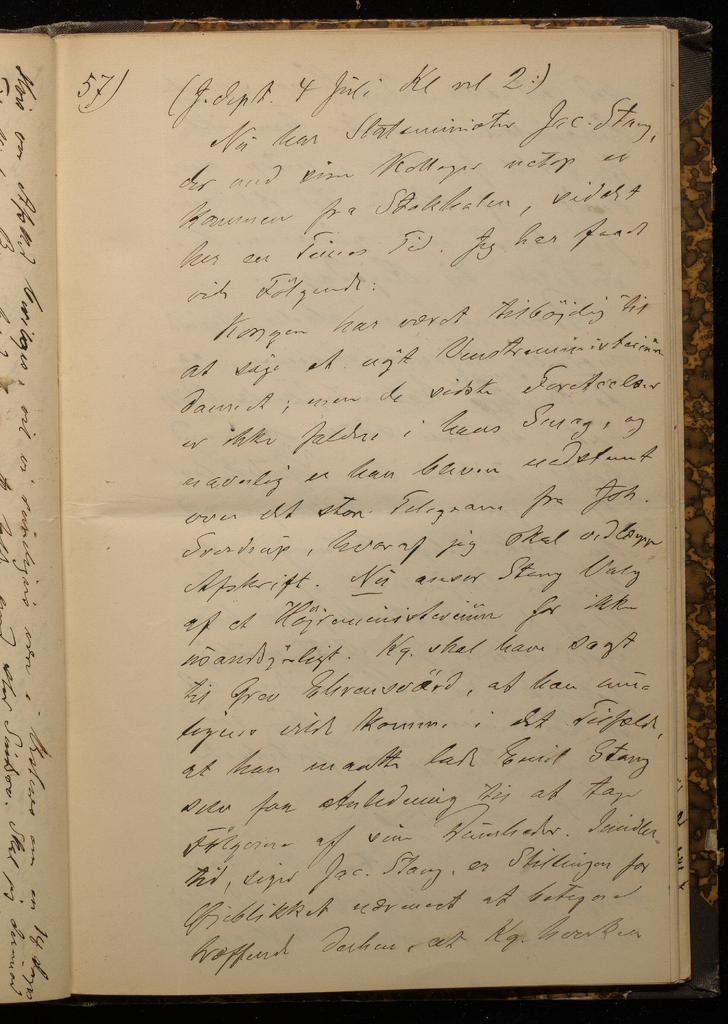 57)
(J. dept. 4 Juli Kl. vel 2:)
Nu har Statsminister Jac. Stang,
der med sine Kolleger netop er
kommen fra Stokholm, siddet
her en Times Tid. Jeg har faaet
vide Følgende:
Kongen har været tilbøjelig til
at søge et nyt Venstreministerium
dannet; men de sidste Foreteelser
er ikke faldne i hans Smag, og
navnlig er han bleven nedstemt
over det store Telegram fra Joh.
Sverdrup, hvoraf jeg skal vedlægge
Afskrift. Nu anser Stang Valg
af et Højreministerium for ikke
usandsynligt. Kg. skal have sagt
til Grev Ehrensvärd, at han mu-
ligens vilde komme i det Tilfælde,
at han maatte lade Emil Stang
selv faa Anledning til at tage
Følgerne af sine Dumheder. Imidler-
tid, siger Jac. Stang, er Stillingen for
Øjeblikket nærmest at betegne
træffende derhen, at Kg. hverken